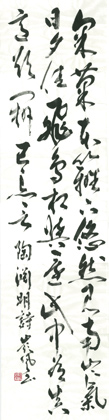 采菊東籬下悠然見南山氣
日夕佳飛鳥相與還此中有真
意欲辨已忘言陶淵明詩